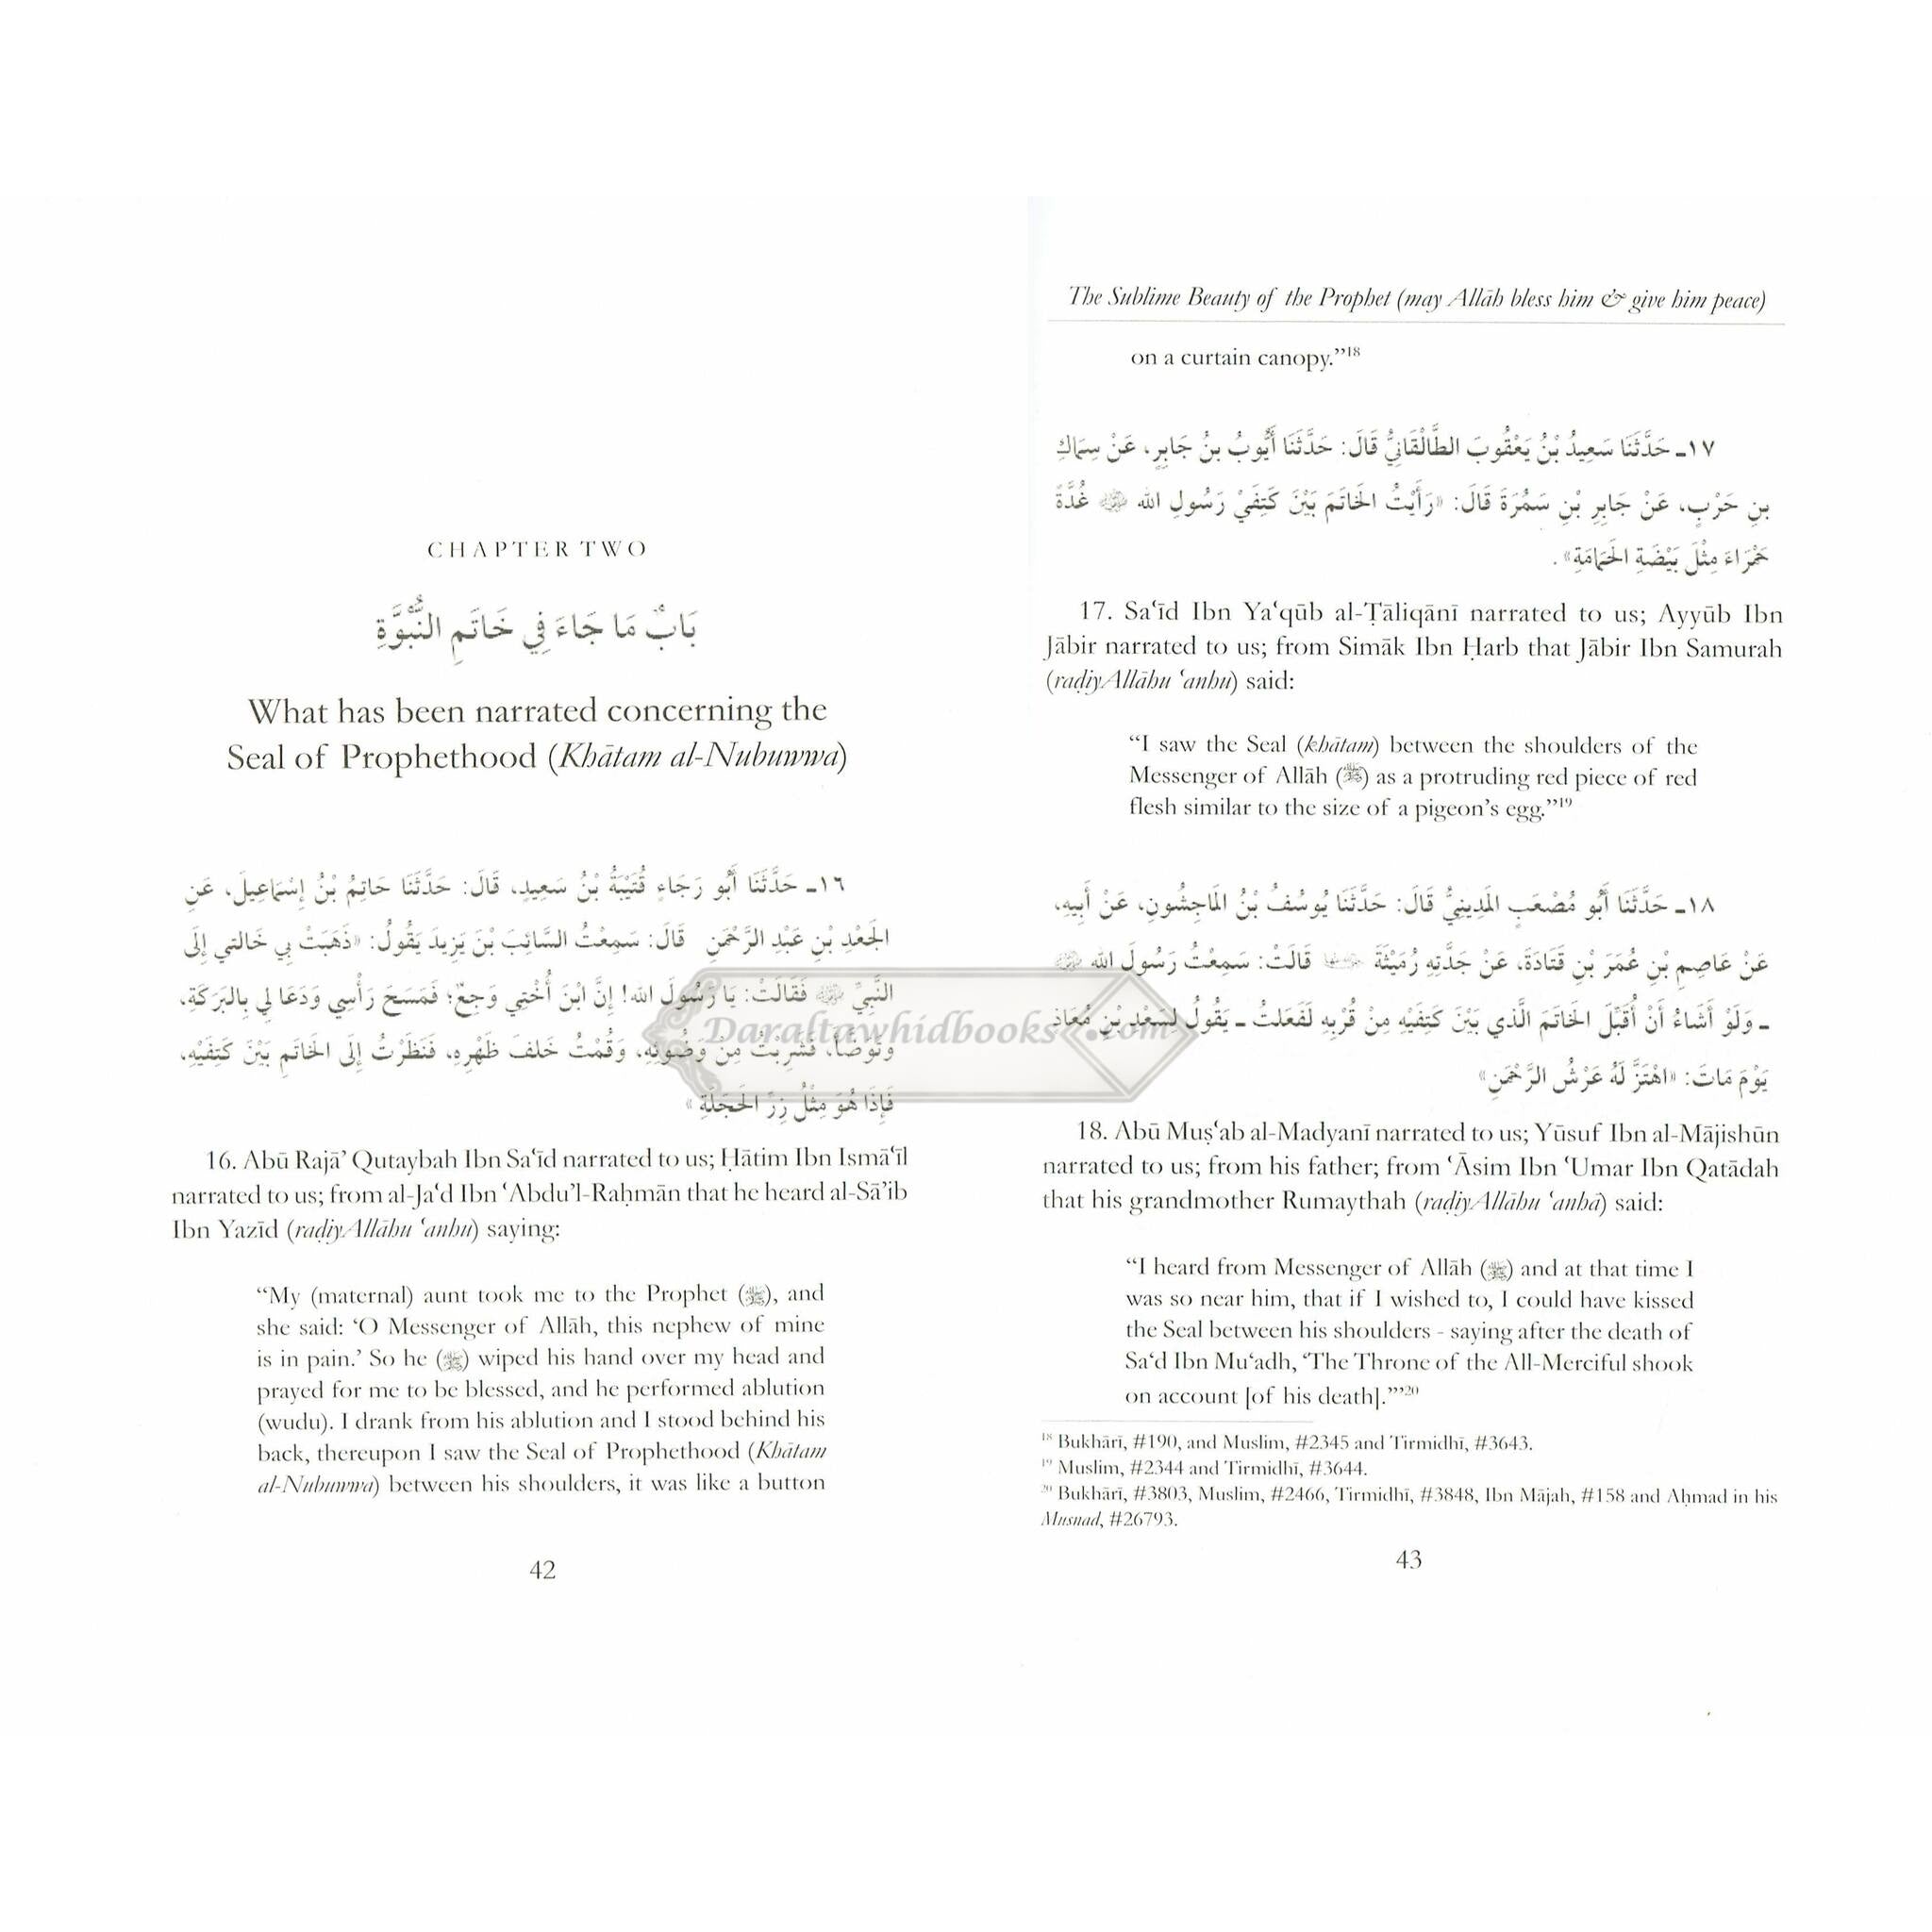 CHAPTER TWO
بَابُ مَا جَاءَ فِي خَاتَمِ النُّبُوَّةِ
What has been narrated concerning the
Seal of Prophethood (Khātam al-Nubuwwa)
١٦ـ حَدَّثَنَا أَبُو رَجَاءٍ قُتَيْبَةُ بْنُ سَعِيدٍ، قَالَ: حَدَّثَنَا حَاتِمُ بْنُ إِسْمَاعِيلَ، عَنِ
الجَعْدِ بْنِ عَبْدِ الرَّحْمَنِ قَالَ: سَمِعْتُ السَّائِبَ بْنَ يَزِيدَ يَقُولُ: «ذَهَبَتْ بِي خَالتي إِلَى
النَّبِيِّ ﷺ فَقَالَتْ: يَا رَسُولَ الله! إِنَّ ابْنَ أُخْتِي وَجِعٌ؛ فَمَسَحَ رَأْسِي وَدَعَا لِي بِالبَرَكَةِ،
وَتَوَضَّأَ، فَشَرِبْتُ مِنْ وَضُوئِهِ، وَقُمْتُ خَلفَ ظَهْرِهِ، فَنَظَرْتُ إِلَى الخَاتَمِ بَيْنَ كَتِفَيْهِ،
فَإِذَا هُوَ مِثْلُ زِرِّ الحَجَلَةِ»
16. Abū Rajā’ Qutaybah Ibn Sa‘īd narrated to us; Ḥātim Ibn Ismā‘īl
narrated to us; from al-Ja‘d Ibn ‘Abdu’l-Raḥmān that he heard al-Sā’ib
Ibn Yazīd (raḍiyAllāhu ‘anhu) saying:
“My (maternal) aunt took me to the Prophet (ﷺ), and
she said: ‘O Messenger of Allāh, this nephew of mine
is in pain.’ So he (ﷺ) wiped his hand over my head and
prayed for me to be blessed, and he performed ablution
(wudu). I drank from his ablution and I stood behind his
back, thereupon I saw the Seal of Prophethood (Khātam
al-Nubuwwa) between his shoulders, it was like a button
42
The Sublime Beauty of the Prophet (may Allāh bless him & give him peace)
on a curtain canopy.”18
١٧ـ حَدَّثَنَا سَعِيدُ بْنُ يَعْقُوبَ الطَّالْقَانِيُّ قَالَ: حَدَّثَنَا أَيُّوبُ بنُ جَابِرٍ، عَنْ سِمَاكِ
بنِ حَرْبٍ، عَنْ جَابِرِ بْنِ سَمُرَةَ قَالَ: «رَأَيْتُ الخَاتَمَ بَيْنَ كَتِفَيْ رَسُولِ الله ﷺ غُدَّةً
حَمْرَاءَ مِثْلَ بَيْضَةِ الحَمَامَةِ».
17. Sa‘īd Ibn Ya‘qūb al-Ṭāliqānī narrated to us; Ayyūb Ibn
Jābir narrated to us; from Simāk Ibn Ḥarb that Jābir Ibn Samurah
(raḍiyAllāhu ‘anhu) said:
“I saw the Seal (khātam) between the shoulders of the
Messenger of Allāh (ﷺ) as a protruding red piece of red
flesh similar to the size of a pigeon’s egg.”19
١٨ـ حَدَّثَنَا أَبُو مُصْعَبٍ المَدِينِيُّ قَالَ: حَدَّثَنَا يُوسُفُ بْنُ المَاجِشُونِ، عَنْ أَبِيهِ،
عَنْ عَاصِمِ بْنِ عُمَرَ بْنِ قَتَادَةَ، عَنْ جَدَّتِهِ رُمَيْثَةَ قَالَتْ: سَمِعْتُ رَسُولَ الله ﷺ
ـ وَلَوْ أَشَاءُ أَنْ أُقَبِّلَ الخَاتَمَ الَّذي بَيْنَ كَتِفَيْهِ مِنْ قُرْبِهِ لَفَعَلتُ ـ يَقُولُ لسَعْدِ بْنِ مُعَاذٍ
يَوْمَ مَاتَ: «اهْتَزَّ لَهُ عَرْشُ الرَّحْمَنِ»
18. Abū Muṣ‘ab al-Madyanī narrated to us; Yūsuf Ibn al-Mājishūn
narrated to us; from his father; from ‘Āsim Ibn ‘Umar Ibn Qatādah
that his grandmother Rumaythah (raḍiyAllāhu ‘anhā) said:
“I heard from Messenger of Allāh (ﷺ) and at that time I
was so near him, that if I wished to, I could have kissed
the Seal between his shoulders - saying after the death of
Sa‘d Ibn Mu‘adh, ‘The Throne of the All-Merciful shook
on account [of his death].’”20
18 Bukhārī, #190, and Muslim, #2345 and Tirmidhī, #3643.
19 Muslim, #2344 and Tirmidhī, #3644.
20 Bukhārī, #3803, Muslim, #2466, Tirmidhī, #3848, Ibn Mājah, #158 and Aḥmad in his
Musnad, #26793.
43
Daraltawhidbooks.com